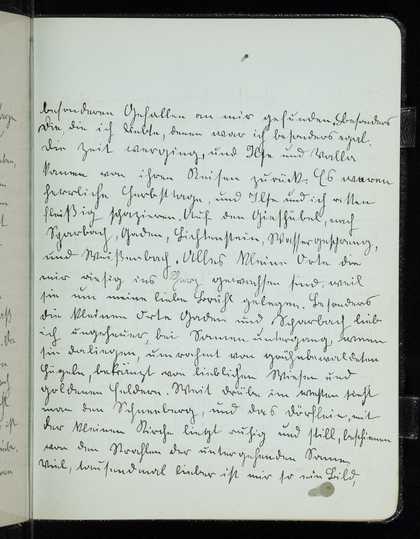 besonderen Gefallen an mir gefunden. Besonders
die die ich liebte, denen war ich besonders egal.
Die Zeit verging, und Ilse und Valla
kamen von ihren Reisen zurück. Es waren
herrliche Herbsttage, und Ilse und ich ritten
fleißig spazieren. Auf den Gießhübel, nach
Sparbach, Gaden, Lichtenstein, Wassergspreng,
und Weißenbach. Alles kleine Orte die
mir riesig ins Herz gewachsen sind, weil
sie um meine liebe Brühl gelegen. Besonders
die kleinen Orte Gaden und Sparbach lieb
ich ungeheuer, bei Sonnenuntergang, wenn
sie daliegen, umrahmt von grünbewaldeten
Hügeln, bekränzt von lieblichen Wiesen und
goldenen Feldern. Weit drüben im Westen sieht
man den Schneeberg, und das Dörflein, mit
der kleinen Kirche liegt ruhig und still, beschienen
von den Strahlen der untergehenden Sonne.
Viel, tausendmal lieber ist mir so ein Bild,